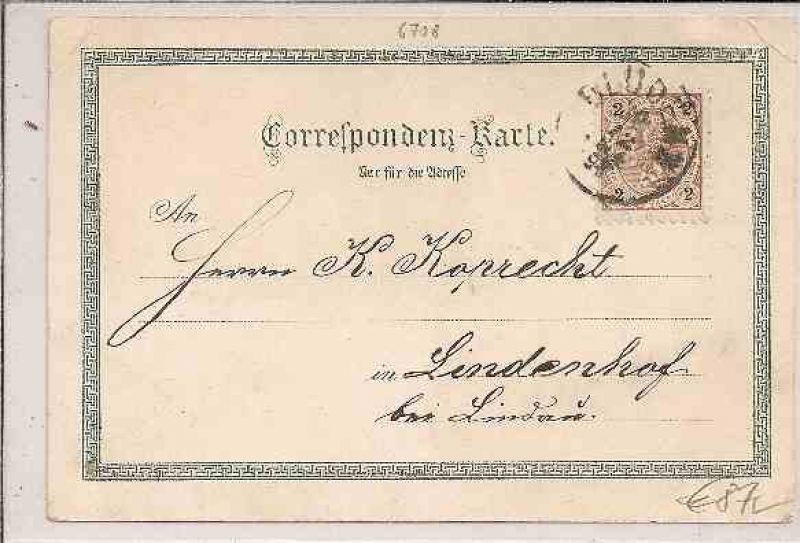 6708
BLUD
2 2
2 2
Correspondenz-Karte.
Nur für die Adresse
An
Herrn K. Koprecht
in Lindenhof
bei Lindau.